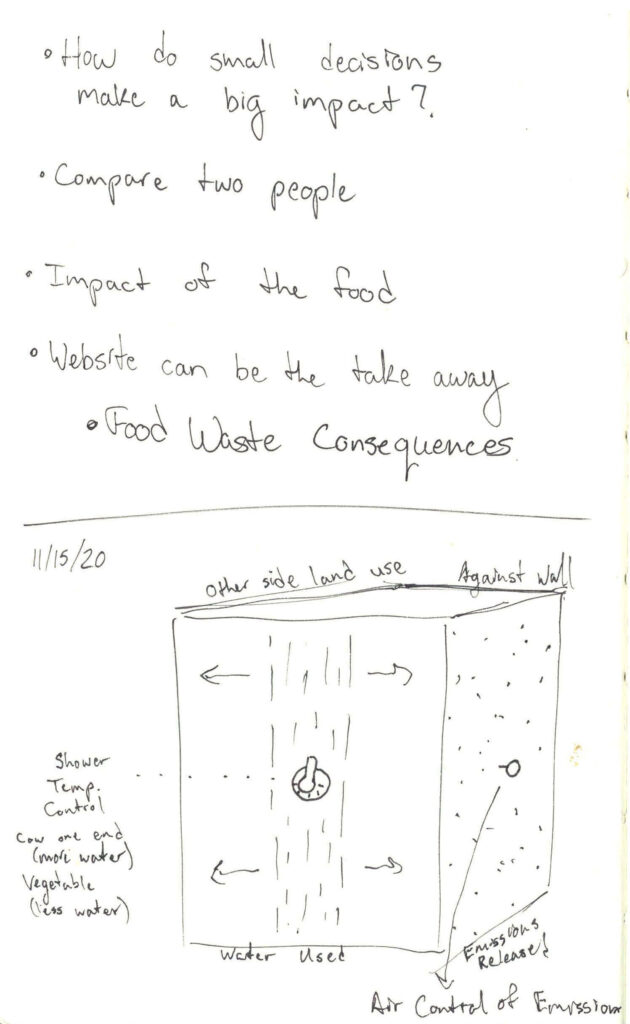 • How do small decisions
make a big impact?
• Compare two people
• Impact of the food
• Website can be the take away
• Food Waste Consequences
11/15/20
Other side land use
Against wall
Shower
Temp.
Control
Cow one end
(more water)
Vegetable
(less water)
Water Used
Emissions
Released
Air Control of Emission